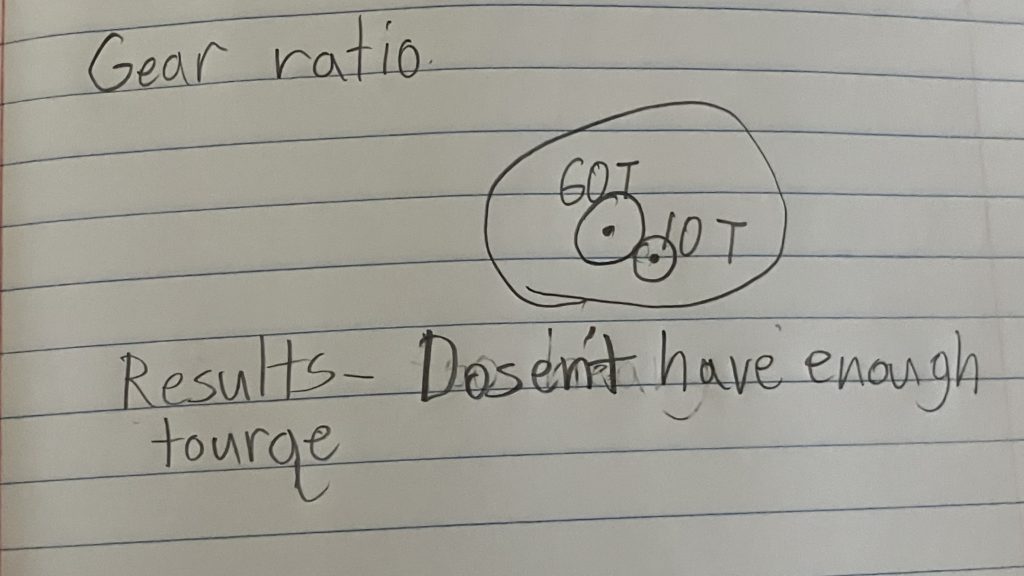 Gear ratio.
60T
10T
Results - Dosen't have enough
tourqe